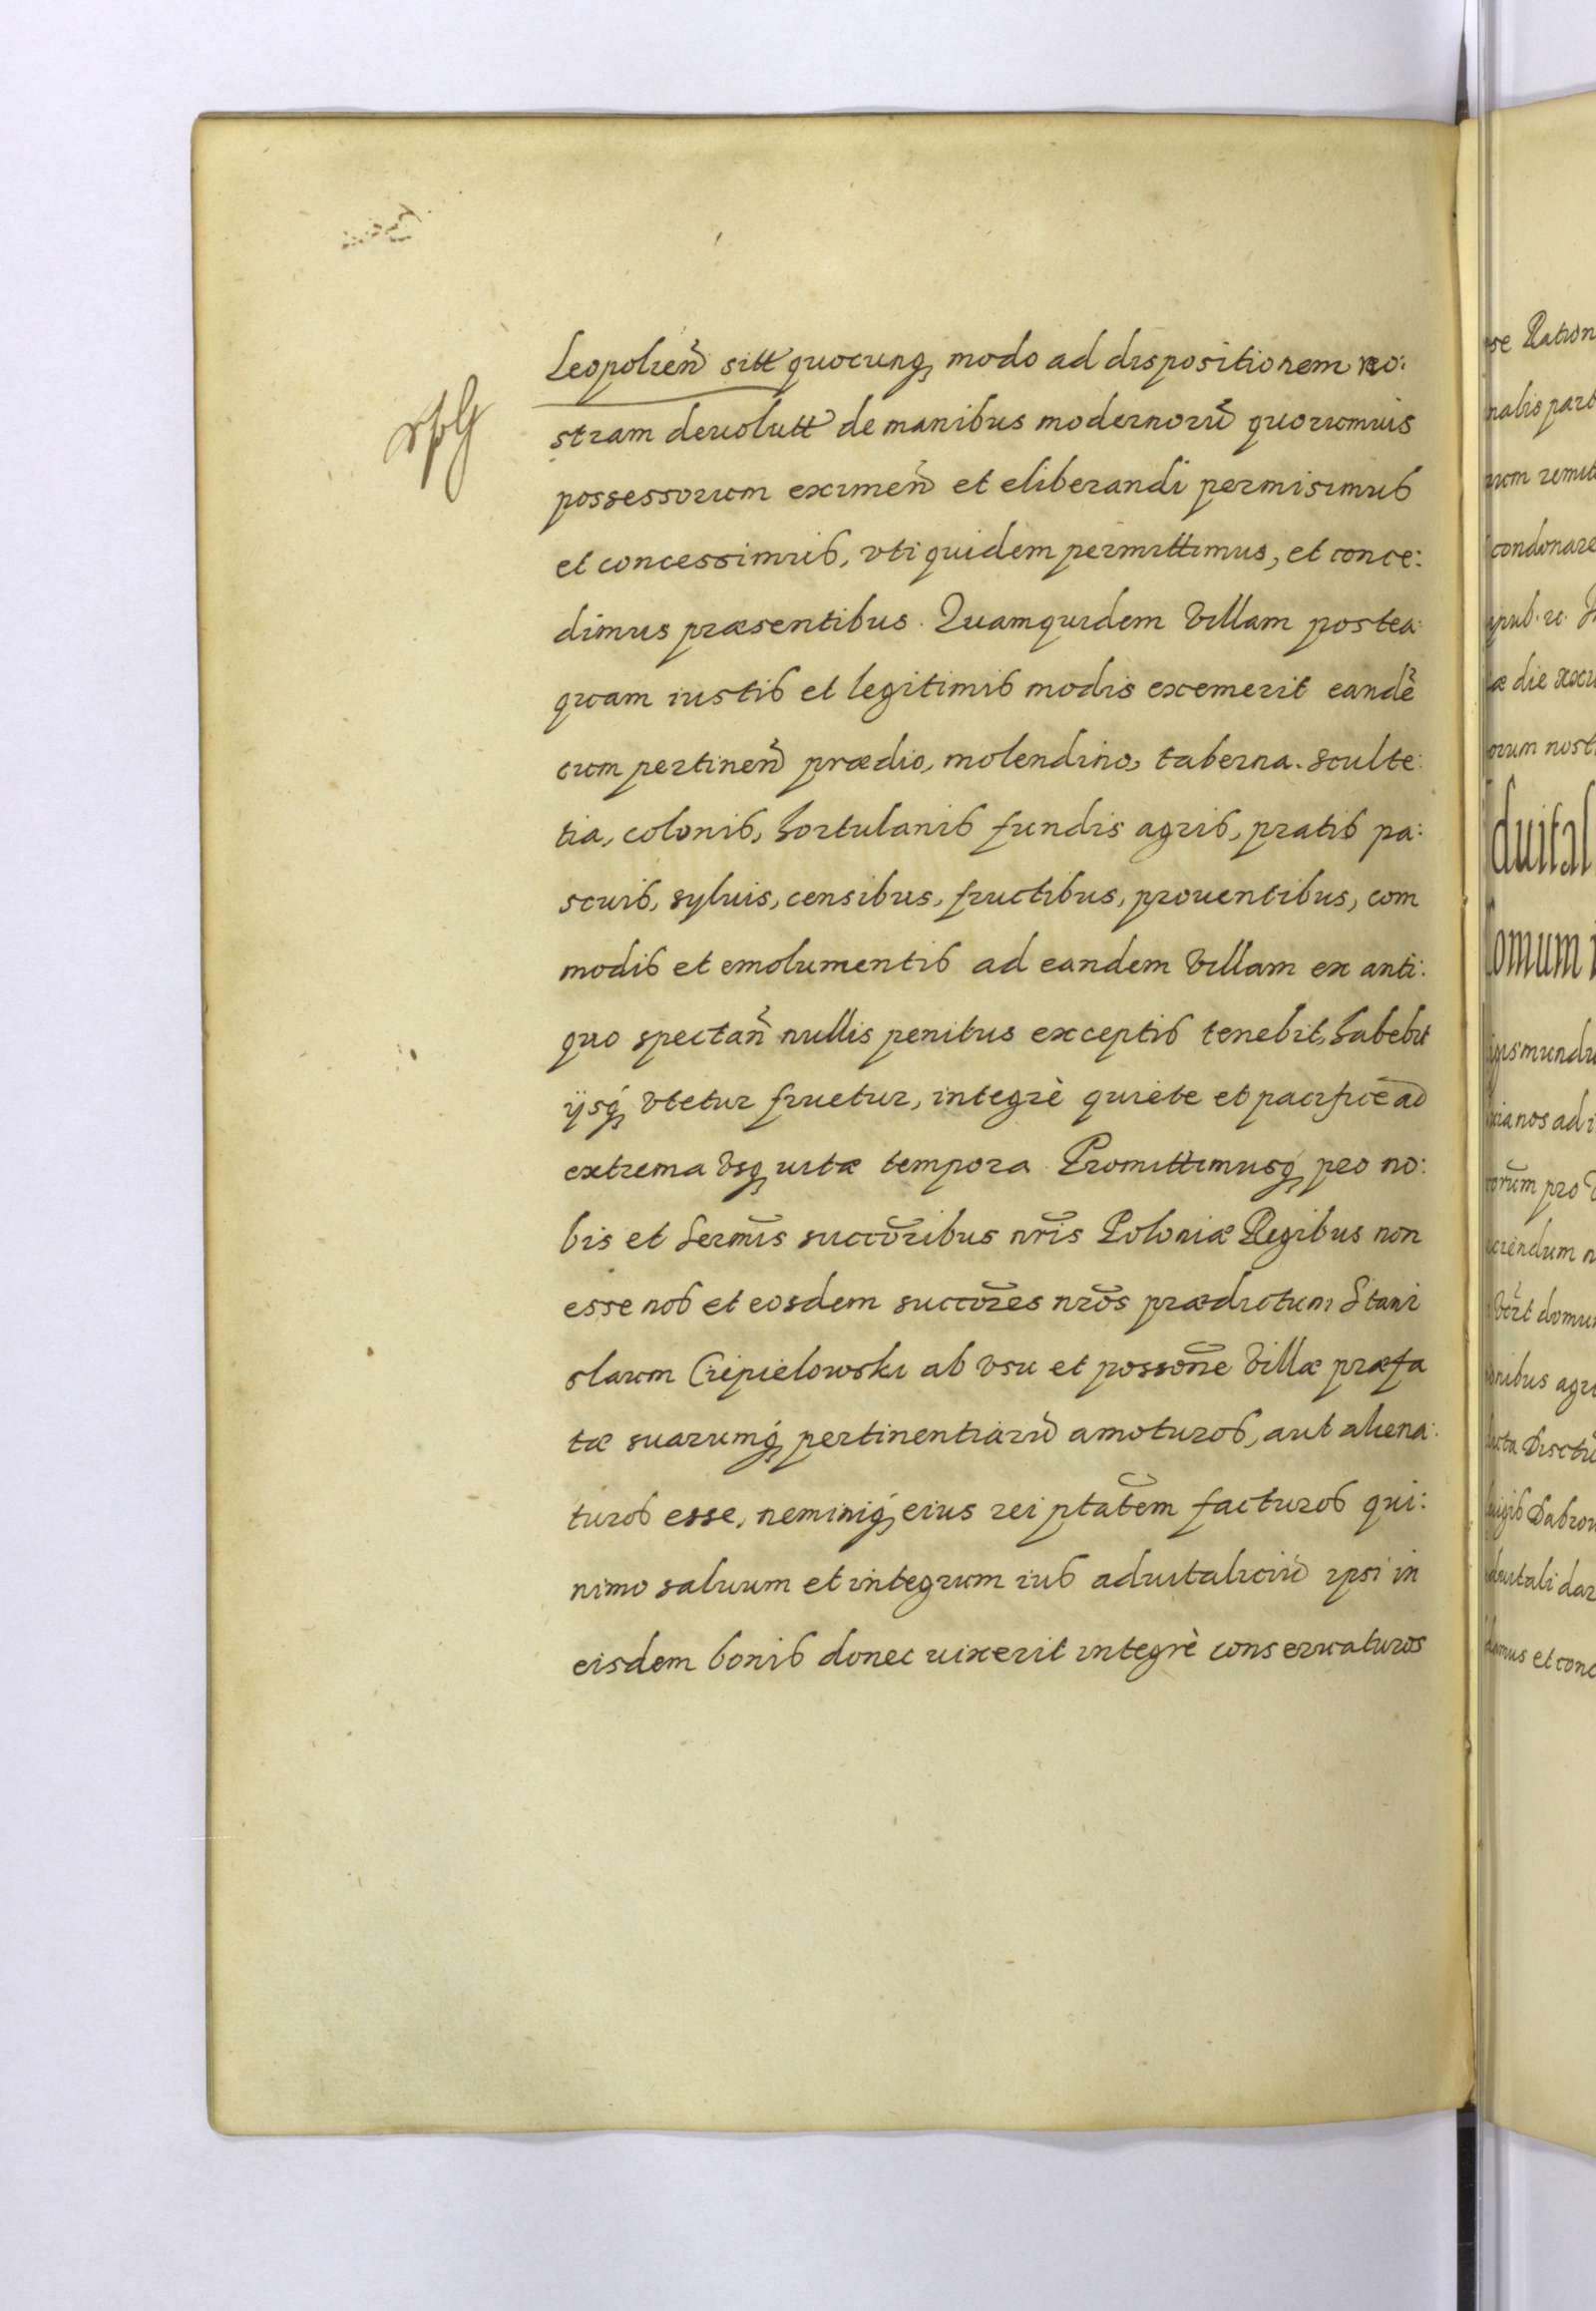 Leopolień sitt quocunq modo ad dispositionem no:
stram deuolutt de manibus modernorū quorumuis
possessorum eximeń et eliberandi permisimus
et concessimus, vti quidem permittimus, et conce:
dimus præsentibus. Quamquidem Villam postea:
quam iustis et legitimis modis exemerit eandē
cum pertineń prædio, molendino, taberna. Sculte:
tia, colonis, hortulanis fundis agris, pratis pa:
scuis, syluis, censibus, fructibus, prouentibus, com
modis et emolumentis ad eandem Villam ex anti:
quo spectań nullis penitus exceptis tenebit, habebit
ijsq́ vtetur fruetur, integrè quiete et pacifice ad
extrema vsq uitæ tempora. Promittimusq́ pro no:
bis et Sermis succoribus nris Poloniæ Regibus non
esse nos et eosdem succores nros prædictum Stani
slaum Criepielowski ab vsu et possone Villæ præfa
tæ suarumq́ pertinentiarū amoturos, aut aliena:
turos esse, neminiq́ eius rei ptatem facturos qui:
nimo saluum et integrum ius aduitaliciū ipsi in
eisdem bonis donec uixerit integrè conseruaturos